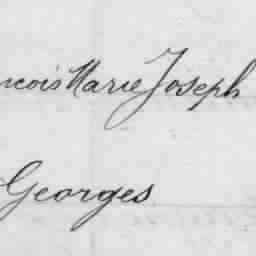 ncois Marie Joseph
Georges